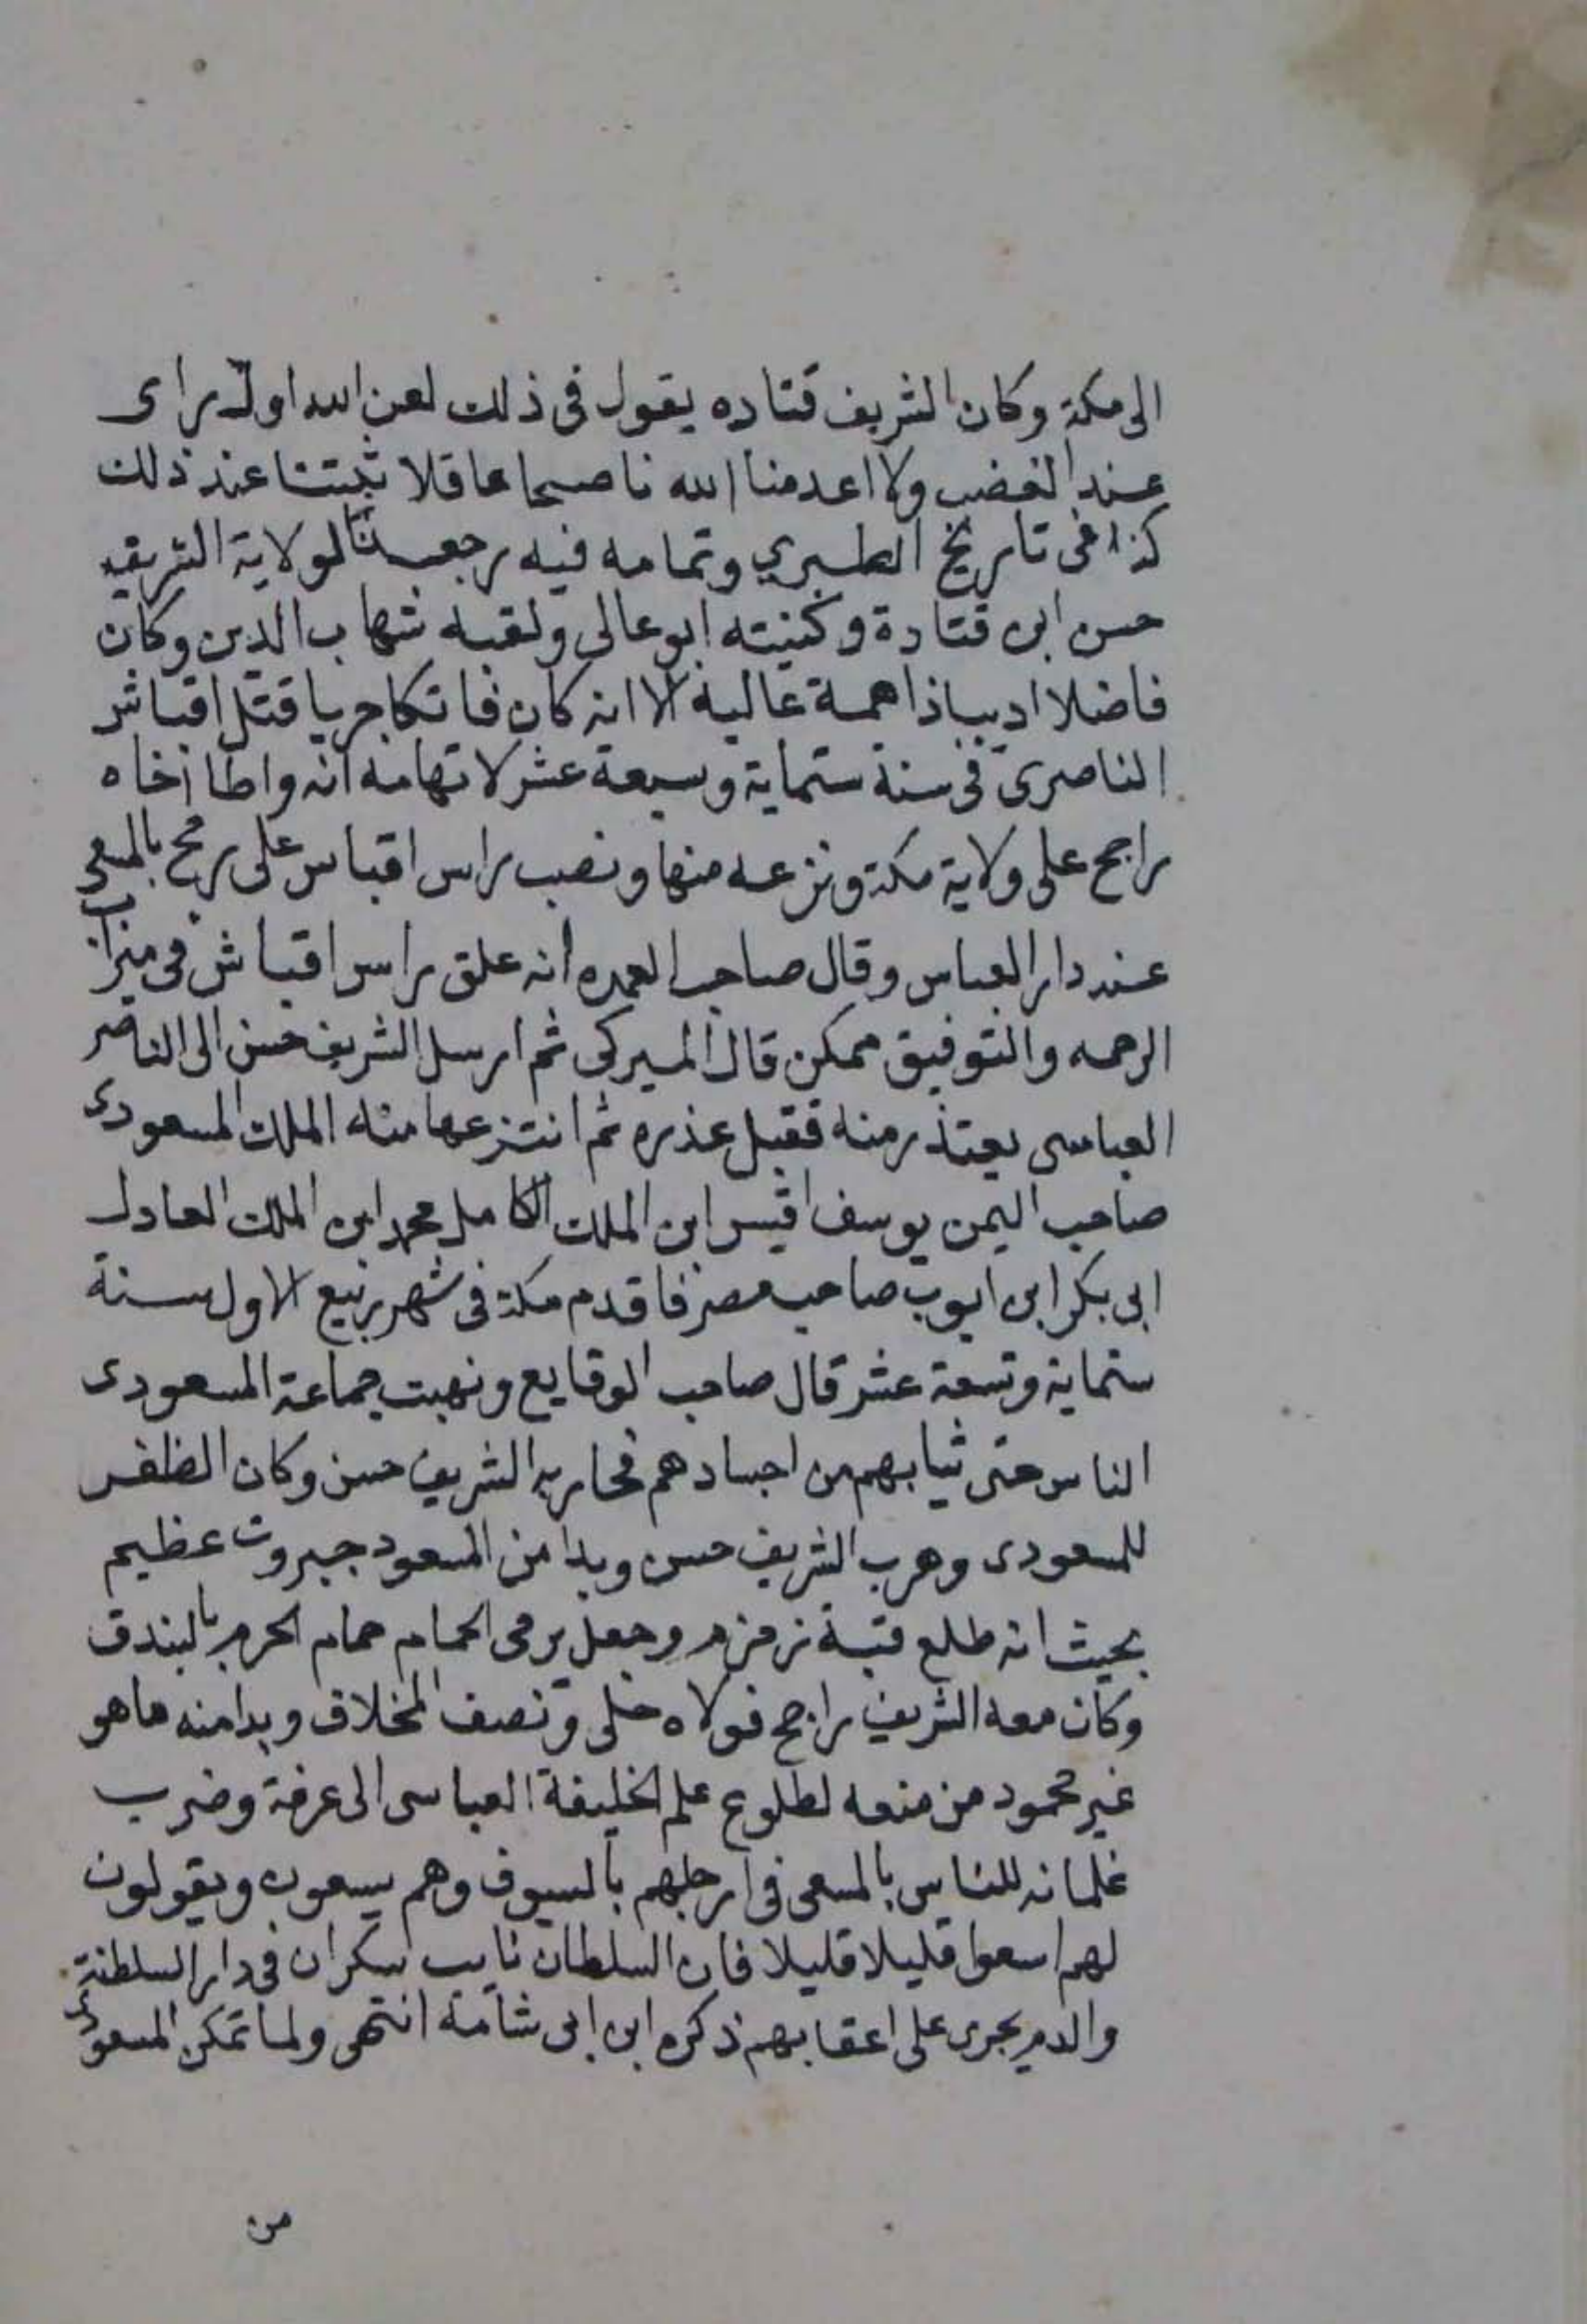 الى مكة وكان الشريف قتاده يقول فى ذلك لعن الله اول راى
عند الغضب ولا اعدمنا الله ناصحا عاقلا يثبتنا عند ذلك
كذا فى تاريخ الطبري وتمامه فيه رجعنا لولاية الشريف
حسن ابن قتادة وكنيته ابو عالى ولقبه شهاب الدين وكان
فاضلا اديبا ذا همة عالية الا انه كان فاتكا جريا قتل اقباش
الناصرى فى سنة ستماية وسبعة عشر لاتهامه انه واطا اخاه
راجح على ولاية مكة ونزعه منها ونصب راس اقباس على رمح بالمسعى
عند دار العباس وقال صاحب العمده انه علق راس اقباش فى ميزاب
الرحمه والتوفيق ممكن قال الميركى ثم ارسل الشريف حسن الى الناصر
العباسى يعتذر منه فقبل عذره ثم انتزعها منه الملك المسعودى
صاحب اليمن يوسف اقيس ابن الملك الكامل محمد ابن الملك العادل
ابى بكر ابن ايوب صاحب مصر فاقدم مكة فى شهر ربيع الاول سنة
ستماية وتسعة عشر قال صاحب الوقايع ونهبت جماعة المسعودى
الناس حتى ثيابهم من اجسادهم فحاربه الشريف حسن وكان الظفر
للمسعودى وهرب الشريف حسن وبدا من المسعود جبروت عظيم
بحيث انه طلع قبة زمزم وجعل يرمى الحمام حمام الحرم بالبندق
وكان معه الشريف راجح فولاه حلى ونصف المخلاف وبدا منه ما هو
غير محمود من منعه لطلوع علم الخليفة العباسى الى عرفة وضرب
غلمانه للناس بالمسعى فى ارجلهم بالسيوف وهم يسعون ويقولون
لهم اسعوا قليلا قليلا فان السلطان نايب سكران فى دار السلطنة
والدم يجرى على اعقابهم ذكره ابن ابى شامة انتهى ولما تمكن المسعودى
من